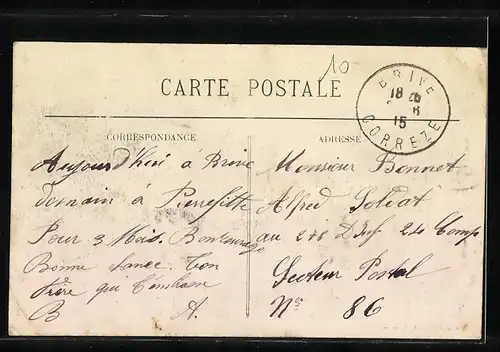 10
CARTE POSTALE
BRIVE
18
15
CORREZE
CORRESPONDANCE
ADRESSE
Aujourd'hui à Brive
demain à Pierrefitte
Pour 3 Mois. Bon Courage
Bonne chance. Ton
frère qui t'embrasse
B A.
Monsieur Bonnet
Alfred Soldat
au 278 D'Inf 24 Comp
Secteur Postal
No 86